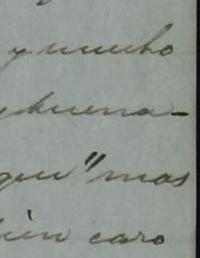 y mucho
buena-
que" mas
bien caro